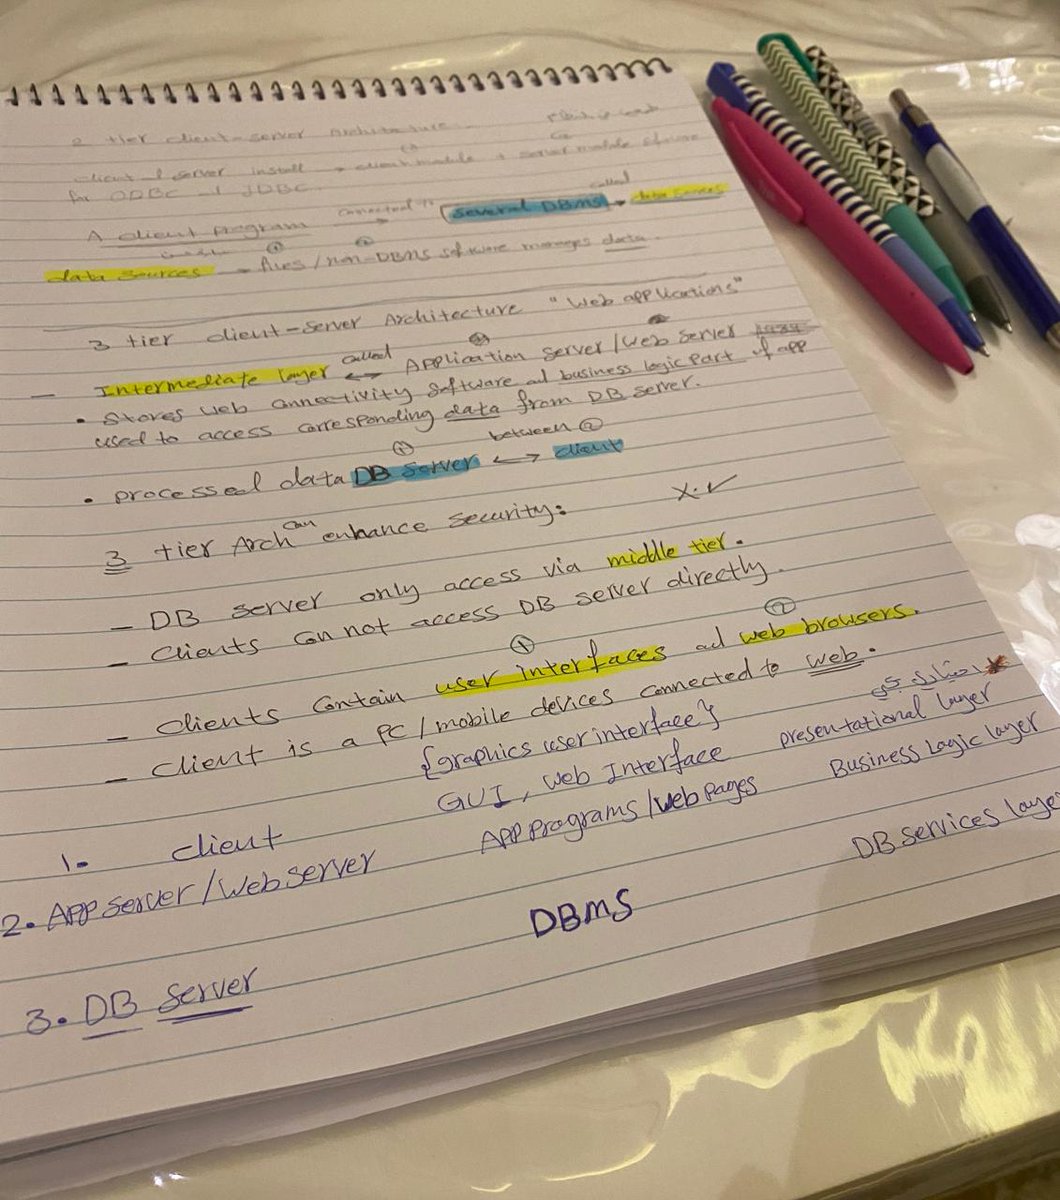 2 tier client-server Architecture
client & server install → client module + server module software
for ODBC and JDBC.
A client program connected to → several DBMS called → data sources
data sources → ① files / ② non-DBMS software manages data.
3 tier client-server Architecture "Web applications"
— Intermediate layer called ↔ Application server/web server
• Stores web connectivity software ad business logic part of app
used to access corresponding data from DB server.
• processed data between ① DB server ↔ ② client
3 tier Arch can enhance security: X.✓
— DB server only access via middle tier.
— Clients can not access DB server directly.
— clients contain ① user interfaces ad ② web browsers.
— client is a PC/mobile devices connected to web.
{graphics user interface}
1- client GUI, Web Interface presentational layer
2. APP server/Web server APP programs/web pages Business Logic layer
3. DB server DBMS DB services layer